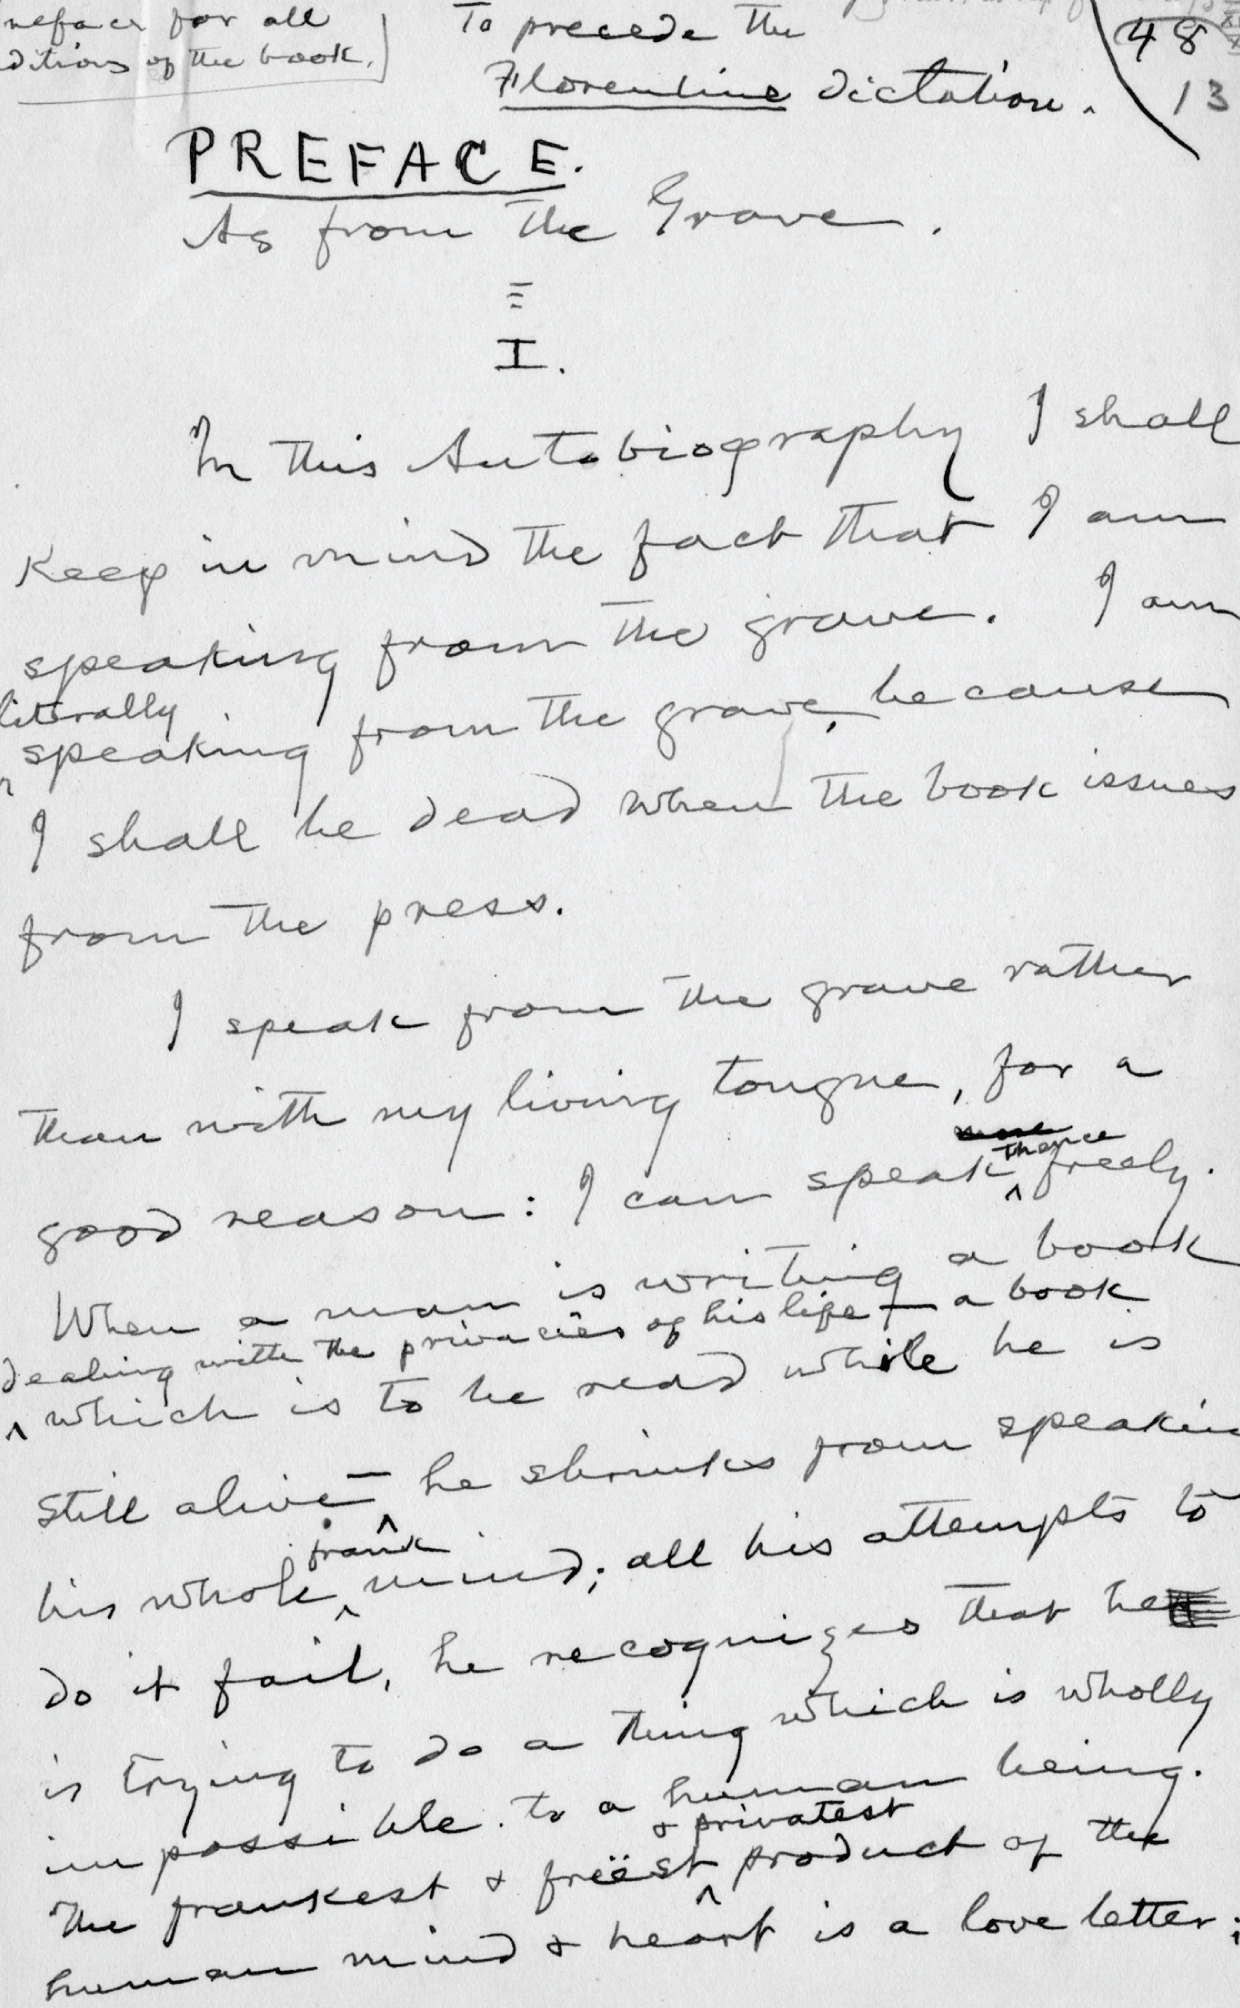 reface for all
ditions of the book.]
To precede the
Florentine dictation.
48
13
PREFACE.
As from the Grave.
I.
In this Autobiography I shall
keep in mind the fact that I am
speaking from the grave. I am
literally
speaking from the grave, because
I shall be dead when the book issues
from the press.
I speak from the grave rather
than with my living tongue, for a
good reason: I can speak
thence
freely.
When a man is writing a book
dealing with the privacies of his life — a book
which is to be read while he is
still alive — he shrinks from speakin
frank
his whole mind; all his attempts to
do it fail, he recognizes that he
is trying to do a thing which is wholly
impossible to a human being.
& privatest
The frankest & freëst product of the
human mind & heart is a love letter;